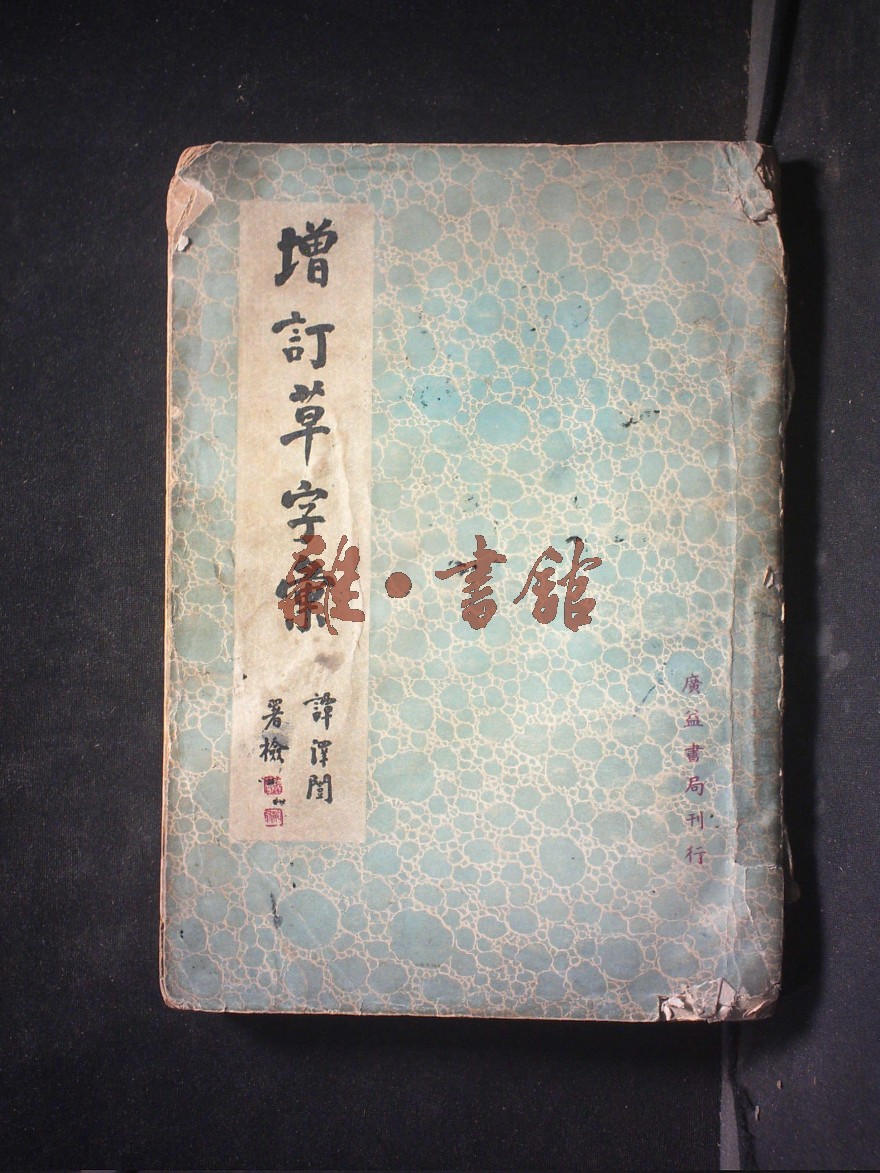 增訂草字彙
譚澤闓
署檢
廣益書局刊行
雜·書館